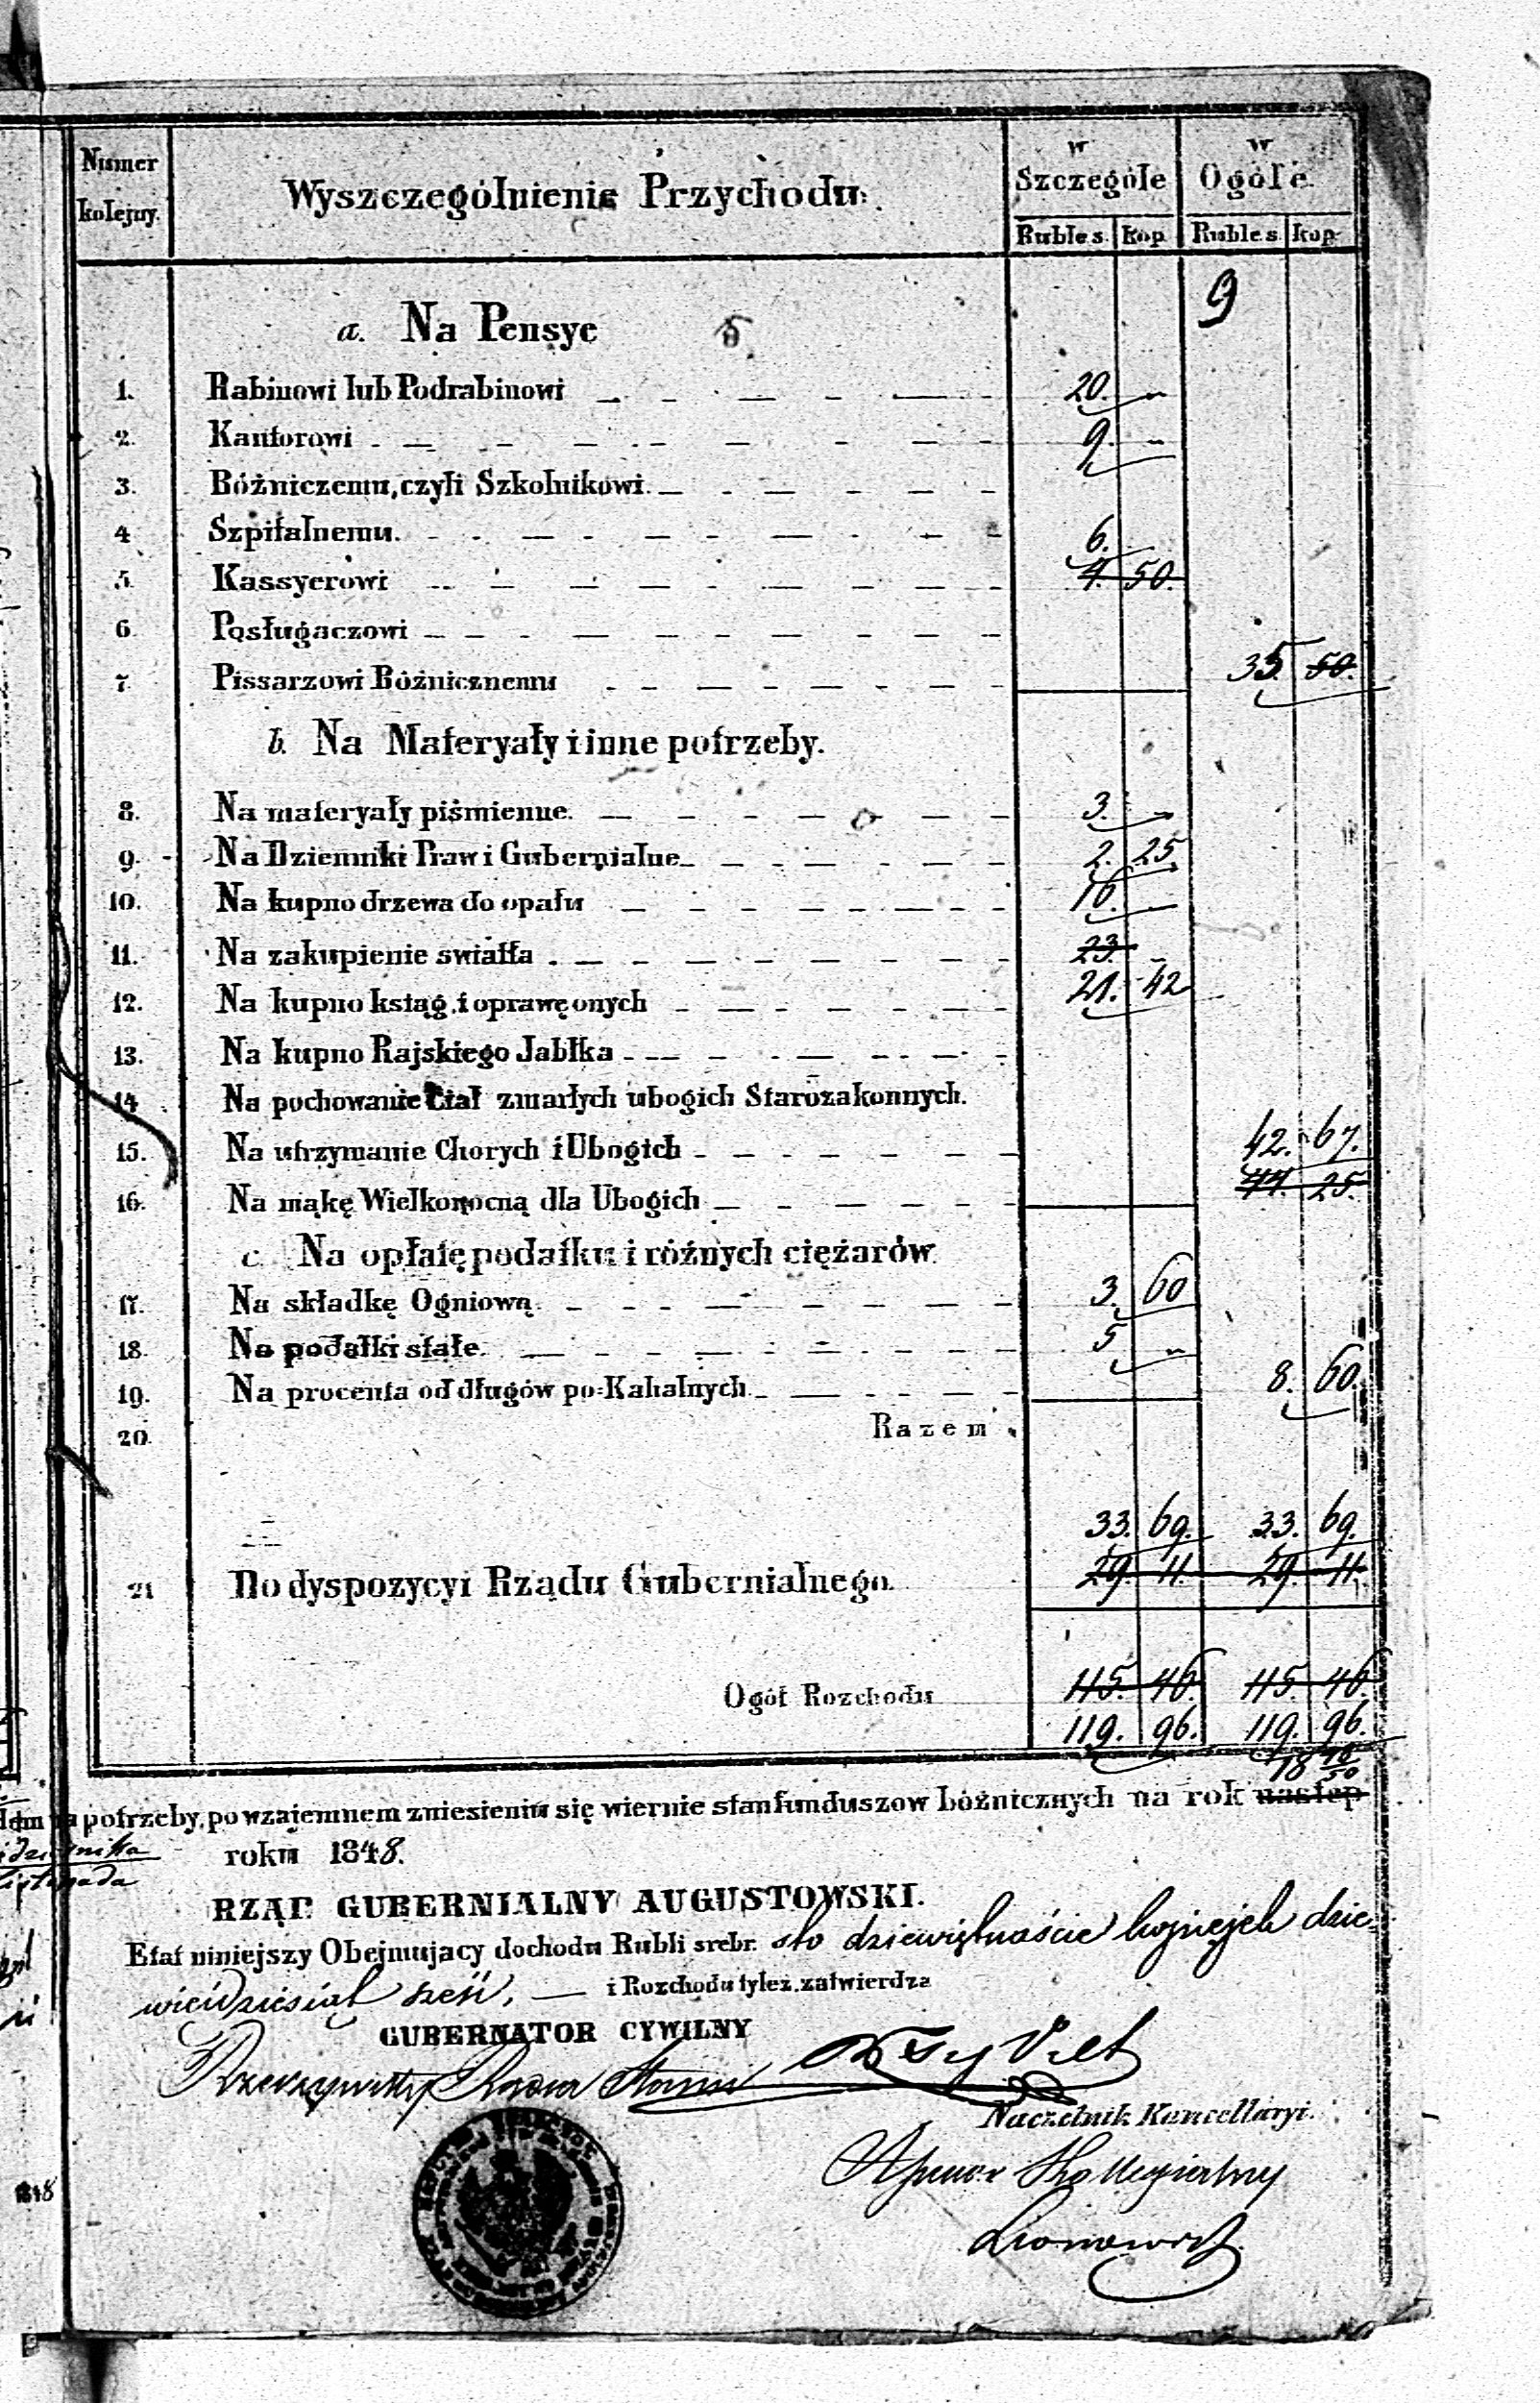 Numer kolejny.
Wyszczególnienie Przychodu.
w Szczególe
w Ogóle.
Rubles. kop. Rubles. kop.
9
a. Na Pensye
1. Rabinowi lub Podrabinowi 20. „
2. Kantorowi 9. „
3. Bóżniczemu, czyli Szkolnikowi.
4 Szpitalnemu. 6.
5. Kassyerowi 4. 50.
6 Posługaczowi
7. Pissarzowi Bóżnicznemu 35. 50.
b. Na Materyały i inne potrzeby.
8. Na materyały piśmienne. 3. „
9. Na Dzienniki Praw i Gubernialne 2. 25
10. Na kupno drzewa do opału 16. „
11. Na zakupienie swiatła 23. „
12. Na kupno ksiąg i oprawę onych 21. 42
13. Na kupno Rajskiego Jabłka
14 Na pochowanie Ciał zmarłych ubogich Starozakonnych.
15. Na utrzymanie Chorych i Ubogich 42. 67.
16. Na mąkę Wielkonocną dla Ubogich 44. 25.
c. Na opłatę podatku i różnych ciężarów.
17. Na składkę Ogniową 3. 60
18. Na podatki stałe. 5 „
19. Na procenta od długów po-Kahalnych. 8. 60.
20. Razem
33. 69. 33. 69.
21 Do dyspozycyi Rządu Gubernialnego. 29. 11. 29. 11.
Ogół Rozchodu 115. 46. 115. 46.
119. 96. 119. 96.
potrzeby, po wzajemnem zniesieniu się wiernie stan funduszow bóżnicznych na rok następ
roku 1848.
RZĄD GUBERNIALNY AUGUSTOWSKI.
Etat niniejszy Obejmujacy dochodu Rubli srebr. sto dziewiętnaście kopiejek dzie-
więdziesiąt sześć, — i Rozchodu tyleż, zatwierdza
GUBERNATOR CYWILNY
Rzeczywisty Radca Stanu
Naczelnik Kancellaryi.
Assesor Kollegialny
1848